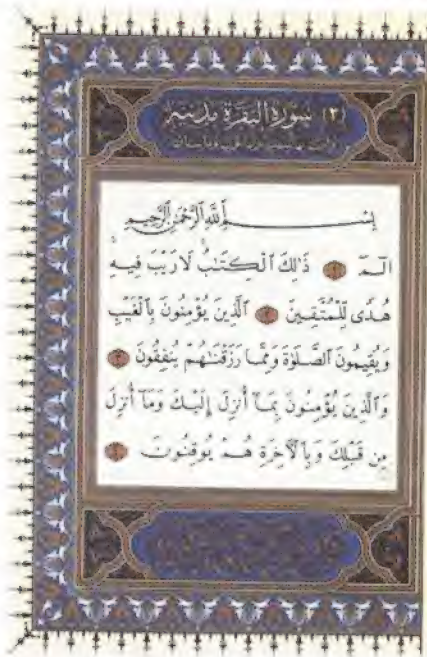 (٢) سورة البقرة مدنية
بسم الله الرحمن الرحيم
الٓمٓ ١ ذَٰلِكَ الْكِتَٰبُ لَا رَيْبَ فِيهِ
هُدًى لِّلْمُتَّقِينَ ٢ الَّذِينَ يُؤْمِنُونَ بِالْغَيْبِ
وَيُقِيمُونَ الصَّلَوٰةَ وَمِمَّا رَزَقْنَٰهُمْ يُنفِقُونَ ٣
وَالَّذِينَ يُؤْمِنُونَ بِمَآ أُنزِلَ إِلَيْكَ وَمَآ أُنزِلَ
مِن قَبْلِكَ وَبِالْآخِرَةِ هُمْ يُوقِنُونَ ٤